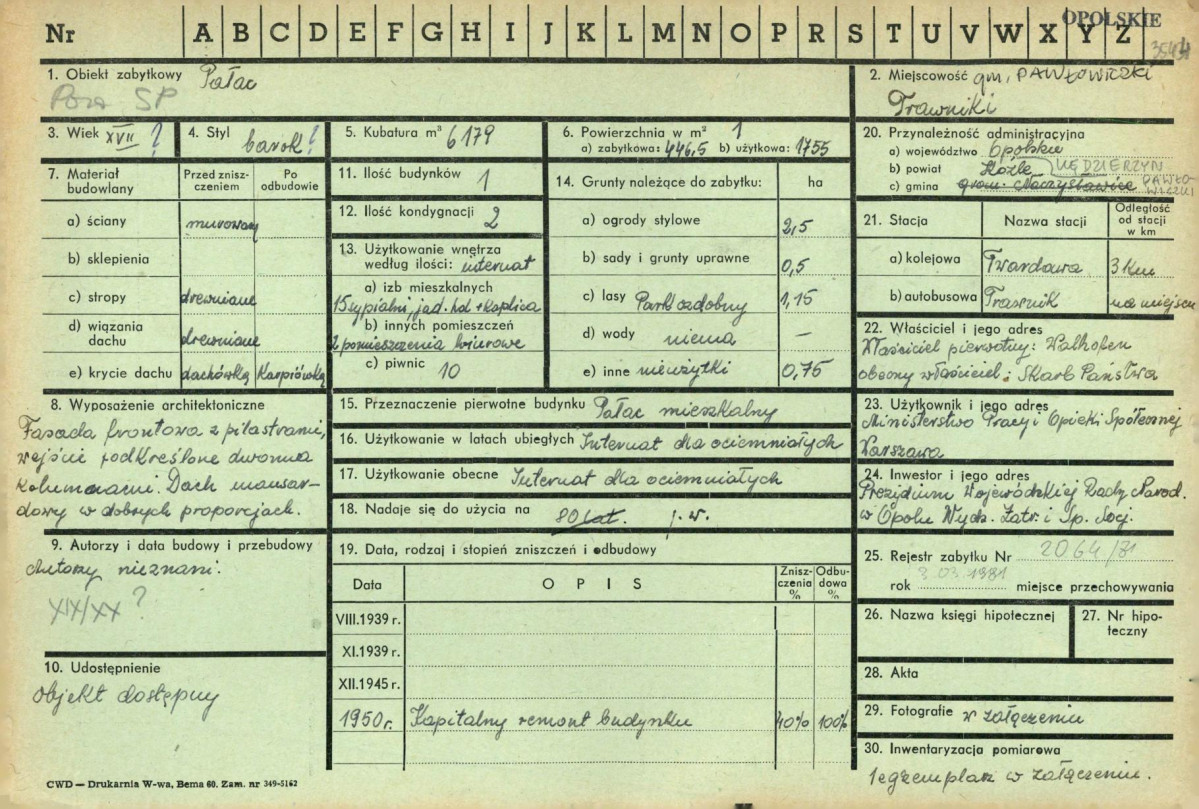 OPOLSKIE
Nr A B C D E F G H I J K L M N O P R S T U V W X Y Z
1. Obiekt zabytkowy Pałac
Poza SP
2. Miejscowość gm. PAWŁOWICZKI
Trawniki
3. Wiek XVII ?
4. Styl barok?
5. Kubatura m³ 6179
6. Powierzchnia w m² 1
a) zabytkowa: 446,5 b) użytkowa: 1755
20. Przynależność administracyjna
a) województwo Opolskie
b) powiat Koźle KĘDZIERZYN
c) gmina grom. Naczysławice PAWŁO-
WICZKI
7. Materiał
budowlany
Przed znisz-
czeniem
Po
odbudowie
a) ściany murowany
b) sklepienia
c) stropy drewniane
d) wiązania
dachu drewniane
e) krycie dachu dachówką Karpiówką
11. Ilość budynków 1
12. Ilość kondygnacji 2
13. Użytkowanie wnętrza
według ilości: internat
a) izb mieszkalnych
15 sypialni, jad. hol + kaplica
b) innych pomieszczeń
2 pomieszczenia biurowe
c) piwnic 10
14. Grunty należące do zabytku: ha
a) ogrody stylowe 2,5
b) sady i grunty uprawne 0,5
c) lasy Park ozdobny 1,15
d) wody niema —
e) inne nieużytki 0,75
21. Stacja Nazwa stacji Odległość
od stacji
w km
a) kolejowa Twardawa 3 Km
b) autobusowa Trawnik na miejscu
22. Właściciel i jego adres
Właściciel pierwotny: Walhofen
obecny właściciel: Skarb Państwa
8. Wyposażenie architektoniczne
Fasada frontowa z pilastrami,
wejście podkreślone dwoma
kolumnami. Dach mansar-
dowy w dobrych proporcjach.
15. Przeznaczenie pierwotne budynku Pałac mieszkalny
16. Użytkowanie w latach ubiegłych Internat dla ociemniałych
17. Użytkowanie obecne Internat dla ociemniałych
18. Nadaje się do użycia na 80 lat. j. w.
23. Użytkownik i jego adres
Ministerstwo Pracy i Opieki Społecznej
Warszawa
24. Inwestor i jego adres
Prezidium Wojewódzkiej Rady Narod.
w Opolu Wydz. Zatr. i Sp. Socj.
9. Autorzy i data budowy i przebudowy
Autorzy nieznani.
XIX/XX ?
10. Udostępnienie
objekt dostępny
19. Data, rodzaj i stopień zniszczeń i odbudowy
Data OPIS Znisz-
czenia
% Odbu-
dowa
%
VIII.1939 r.
XI.1939 r.
XII.1945 r.
1950 r. Kapitalny remont budynku 40% 100%
25. Rejestr zabytku Nr 2064/81
rok 3.03.1981 miejsce przechowywania
26. Nazwa księgi hipotecznej
27. Nr hipo-
teczny
28. Akta
29. Fotografie w załączeniu
30. Inwentaryzacja pomiarowa
1 egzemplarz w załączeniu.
CWD — Drukarnia W-wa, Bema 60. Zam. nr 349-5162